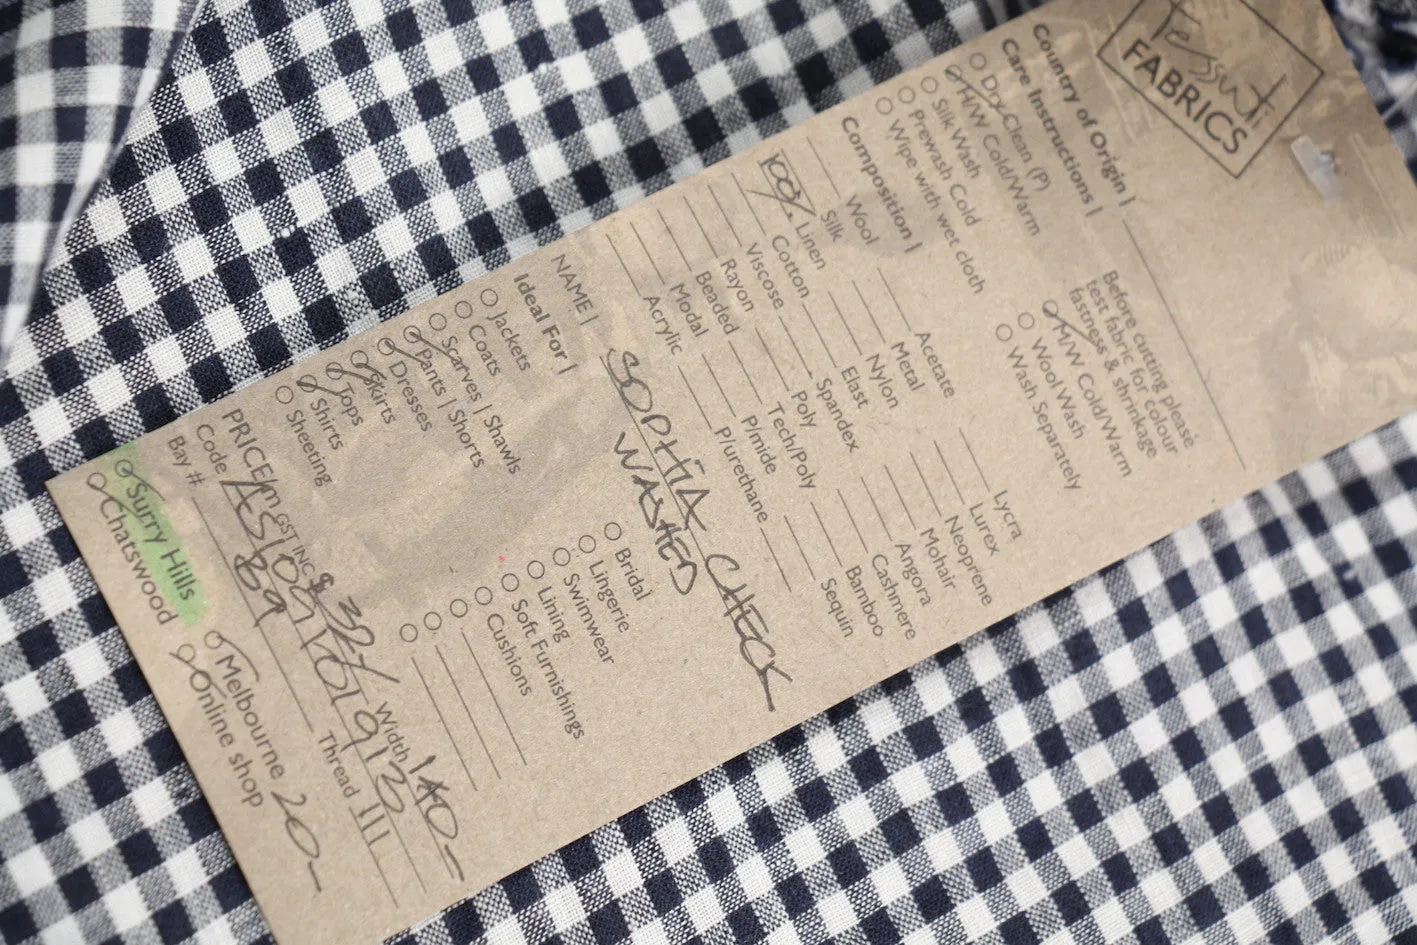 Tessuti
FABRICS
Country of Origin |
Care Instructions |
Dry Clean (P)
H/W Cold/Warm
Silk Wash
Prewash Cold
Wipe with wet cloth
Before cutting please
test fabric for colour
fastness & shrinkage
M/W Cold/Warm
Wool Wash
Wash Separately
Composition |
Wool
Silk
100% Linen
Cotton
Viscose
Rayon
Beaded
Modal
Acrylic
Acetate
Metal
Nylon
Elast
Spandex
Poly
Tech/Poly
P/mide
P/urethane
Lycra
Lurex
Neoprene
Mohair
Angora
Cashmere
Bamboo
Sequin
NAME | SOPHIA CHECK
WASHED
Ideal For |
Jackets
Coats
Scarves | Shawls
Pants | Shorts
Dresses
Skirts
Tops
Shirts
Sheeting
Bridal
Lingerie
Swimwear
Lining
Soft Furnishings
Cushions
PRICE/m GST INC Width 140-
Code
Bay # B9 Thread
Surry Hills
Chatswood
Melbourne 20-
Online shop